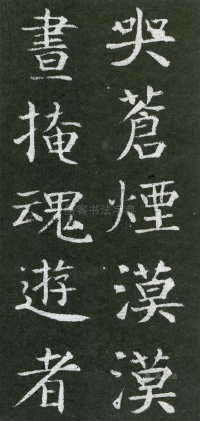 哭蒼煙漠漠
晝掩魂遊者